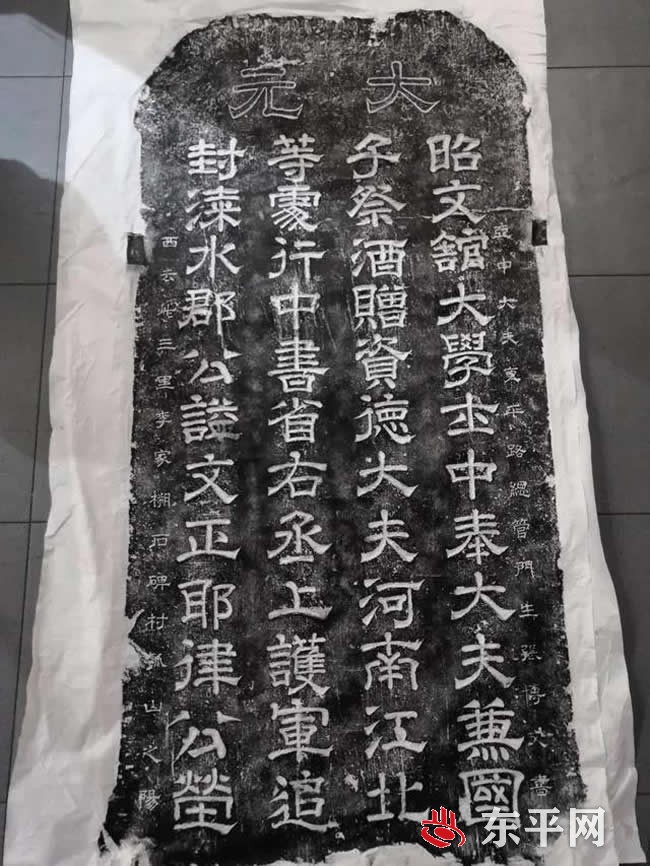 大元
亞中大夫東平路總管門生張𢕟大書
昭文館大學士中奉大夫兼國
子祭酒贈資德大夫河南江北
等處行中書省右丞上護軍追
封漆水郡公謚文正耶律公塋
西去塋三里李家棚石碑村 山之陽
东平网